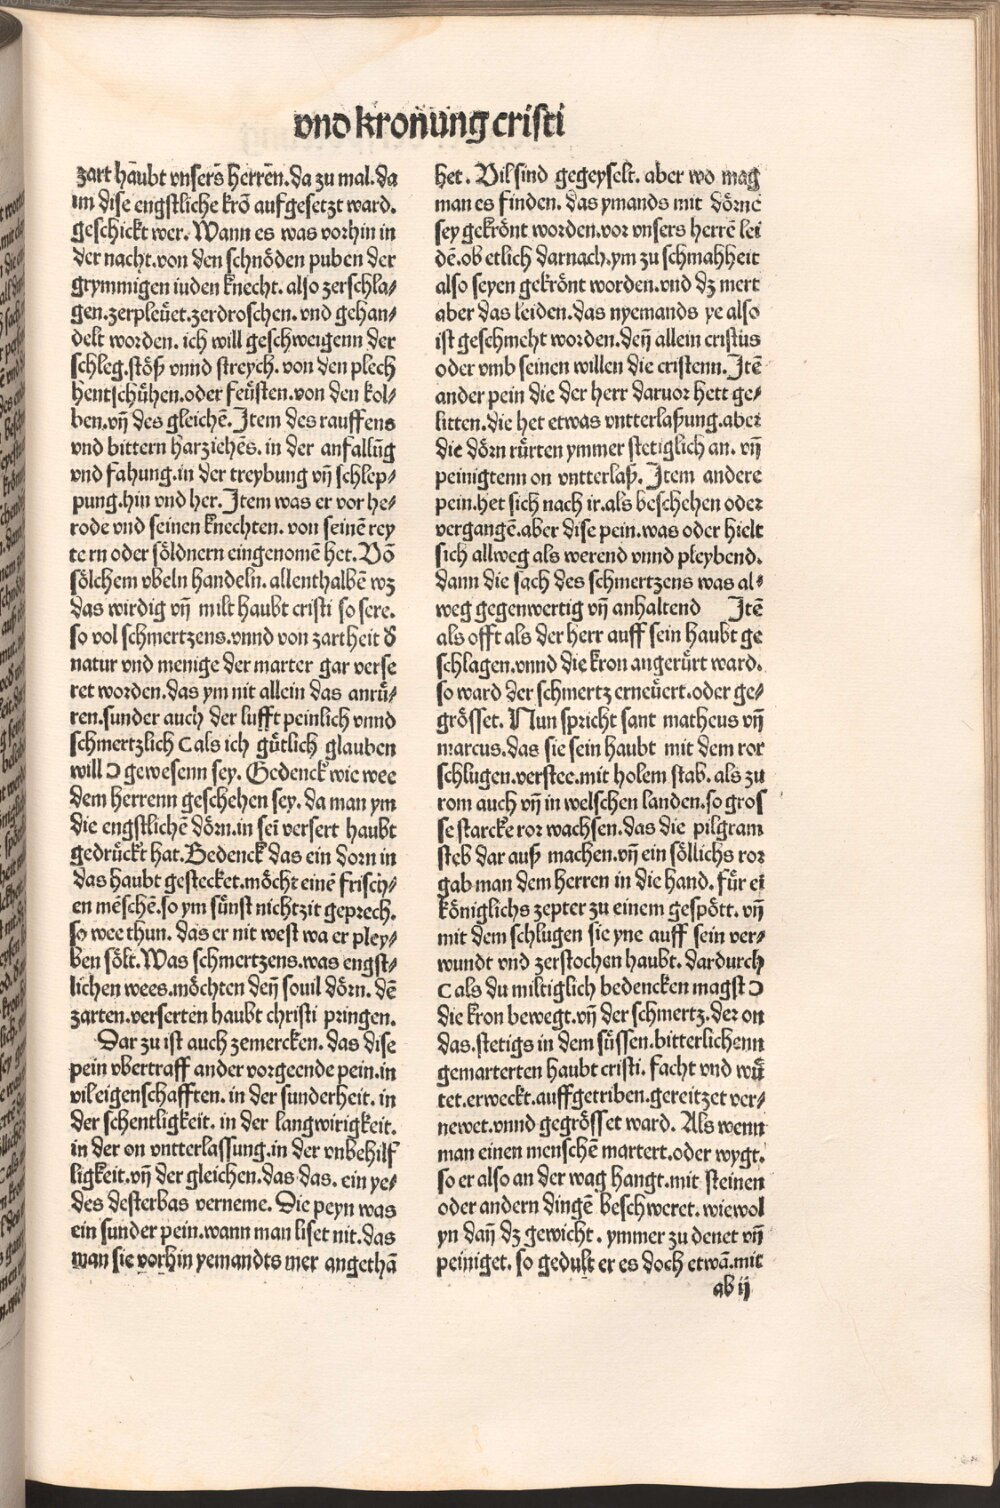 vnd kronūng cristi
zart haubt vnsers herren. da zu mal. da
im dise engstliche krō aufgesetzt ward.
geschickt wer. Wann es was vorhin in
der nacht. von den schnöden puben der
grymmigen iuden knecht. also zerschla⸗
gen. zerpleüet. zerdroschen. vnd gehan⸗
delt worden. ich will geschweigenn der
schleg. stöß vnnd streych. von den plech
hentschühen. oder feüsten. von den kol⸗
ben. vñ des gleichē. Item des rauffens
vnd bittern harziehēs. in der anfallūg
vnd fahung. in der treybung vñ schlep⸗
pung. hin vnd her. Item was er vor he⸗
rode vnd seinen knechten. von seinē rey
tern oder söldnern eingenomē het. Võ
sölchem vbeln handeln. allenthalbē wz
das wirdig vñ milt haubt cristi so sere.
so vol schmertzens. vnnd von zartheit d͛
natur vnd menige der marter gar verse
ret worden. das ym nit allein das anrü⸗
ren. sunder auch der lufft peinlich vnnd
schmertzlich (als ich gütlich glauben
will) gewesenn sey. Gedenck wie wee
dem herrenn geschehen sey. da man ym
die engstlichē dörn. in sei͂ versert haubt
gedrückt hat. Bedenck das ein dorn in
das haubt gestecket. möcht einē frisch⸗
en mēschē. so ym sünst nichtzit geprech.
so wee thun. das er nit west wa er pley⸗
ben sölt. Was schmertzens. was engst⸗
lichen wees. möchten deñ souil dörn. dē
zarten. verserten haubt christi pringen.
Dar zu ist auch zemercken. das dise
pein vbertraff ander vorgeende pein. in
vil eigenschafften. in der sunderheit. in
der schentligkeit. in der langwirigkeit.
in der on vntterlassung. in der vnbehilf
ligkeit. vñ der gleichen. das das. ein ye⸗
des desterbas verneme. Die peyn was
ein sunder pein. wann man liset nit. das
man sie vorhin yemandts mer angethā
het. Vil sind gegeyselt. aber wo mag
man es finden. das ymands mit dörnē
sey gekrönt worden. vor vnsers herrē lei
dē. ob etlich darnach. ym zu schmahheit
also seyen gekrönt worden. vnd dz mert
aber das leiden. das nyemands ye also
ist geschmeht worden. deñ allein cristus
oder vmb seinen willen die cristenn. Itē
ander pein die der herr daruor hett ge⸗
litten. die het etwas vntterlaßung. aber
die dörn rürten ymmer stetiglich an. vñ
peinigtenn on vntterlaß. Item andere
pein. het sich nach ir. als beschehen oder
vergangē. aber dise pein. was oder hielt
sich allweg als werend vnnd pleybend.
dann die sach des schmertzens was al⸗
weg gegenwertig vñ anhaltend Itē
als offt als der herr auff sein haubt ge
schlagen. vnnd die kron angerürt ward.
so ward der schmertz erneüert. oder ge⸗
grösset. Nun spricht sant matheus vñ
marcus. das sie sein haubt mit dem ror
schlugen. verstee. mit holem stab. als zu
rom auch vñ in welschen landen. so gros
se starcke ror wachsen. das die pilgram
steb dar auß machen. vñ ein söllichs ror
gab man dem herren in die hand. für ei͂
königlichs zepter zu einem gespött. vñ
mit dem schlugen sie yne auff sein ver⸗
wundt vnd zerstochen haubt. dardurch
(als du miltiglich bedencken magst)
die kron bewegt. vñ der schmertz. der on
das. stetigs in dem süssen. bitterlichenn
gemarterten haubt cristi. facht vnd wü
tet. erweckt. auffgetriben. gereitzet ver⸗
newet. vnnd gegrösset ward. Als wenn
man einen menschē martert. oder wygt.
so er also an der wag hangt. mit steinen
oder andern dingē beschweret. wiewol
yn dañ dz gewicht. ymmer zu denet vñ
peiniget. so gedult er es doch etwā. mit
ab ij